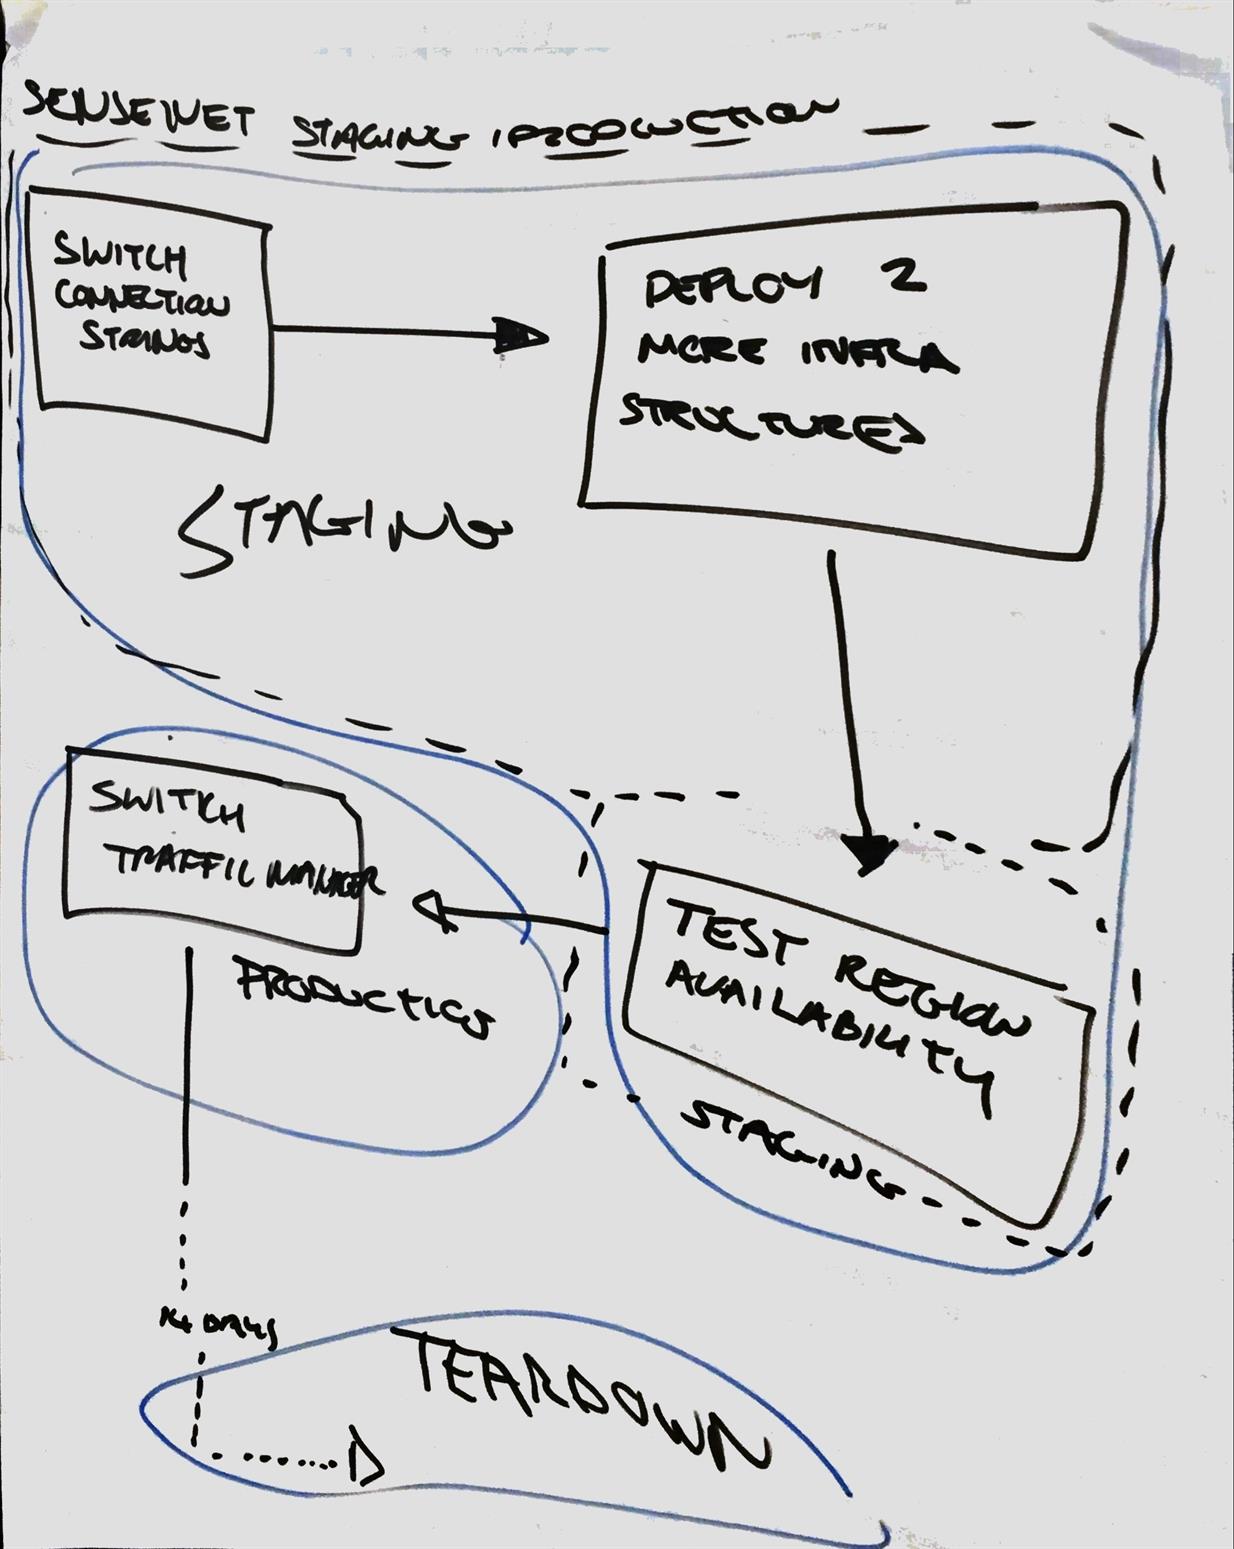 SENSENET STAGING / PRODUCTION
SWITCH
CONNECTION
STRINGS
DEPLOY 2
MORE INFRA
STRUCTURES
STAGING
SWITCH
TRAFFIC MANAGER
PRODUCTION
TEST REGION
AVAILABILITY
STAGING
DAYS
TEARDOWN